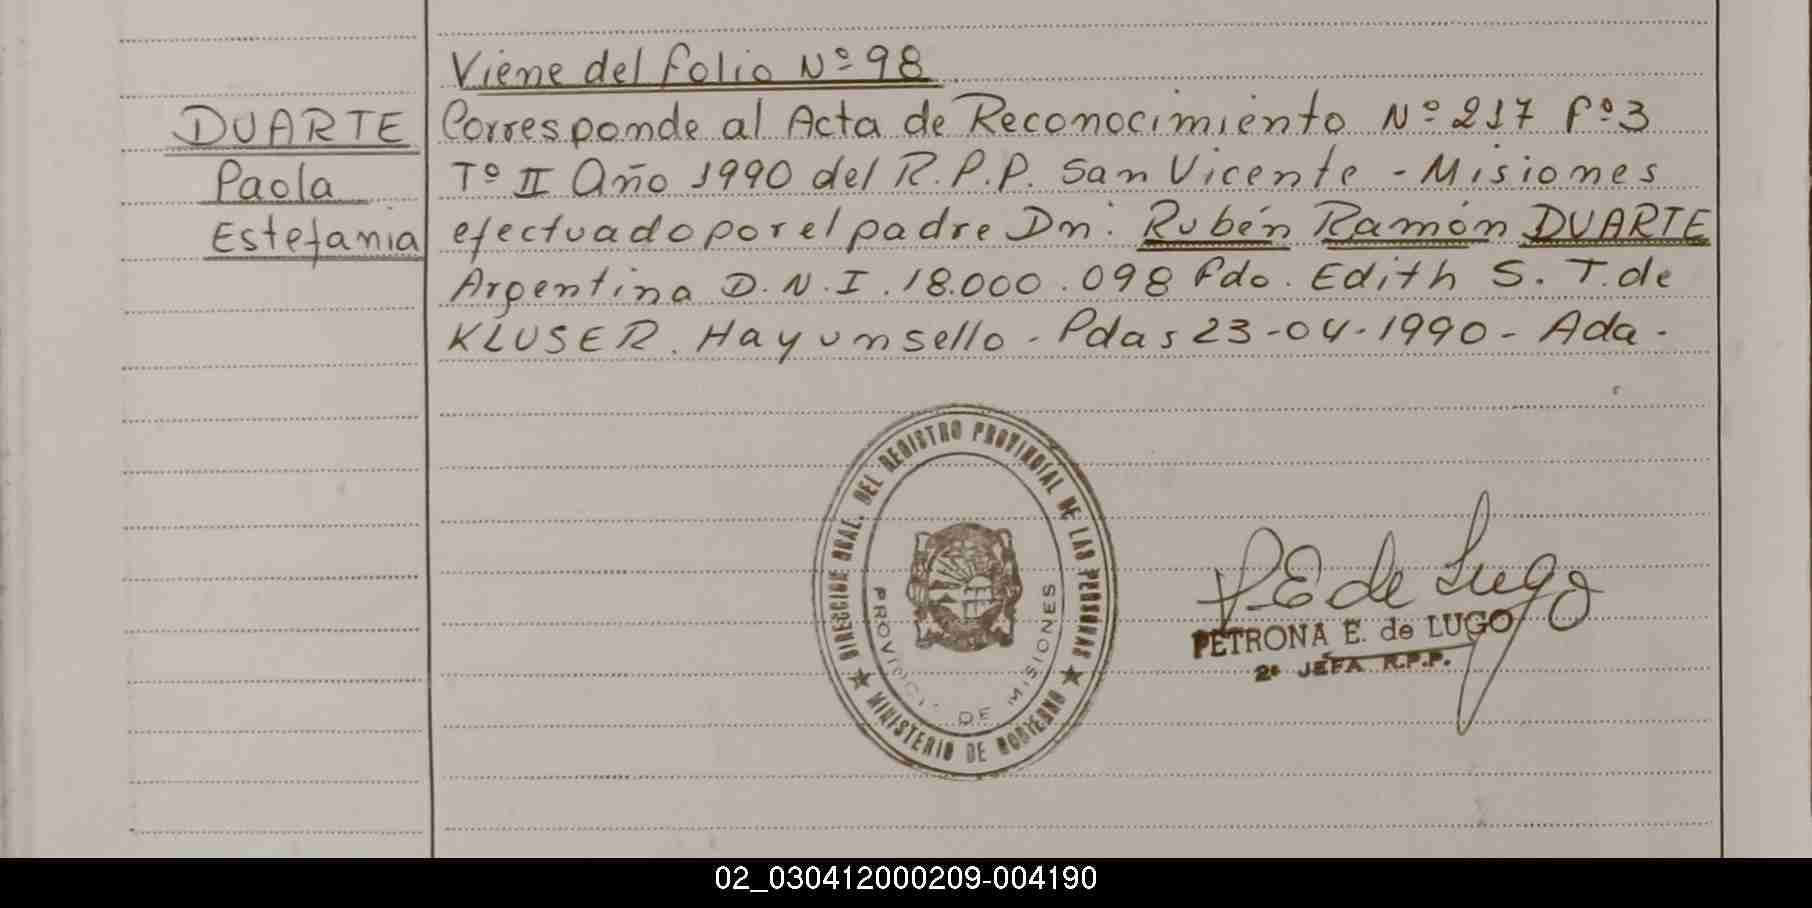 Viene del folio Nº 98
DUARTE
Paola
Estefania
Corresponde al Acta de Reconocimiento Nº 217 fº 3
Tº II Año 1990 del R.P.P. San Vicente - Misiones
efectuado por el padre Dn. Rubén Ramón DUARTE
Argentina D.N.I. 18.000.098 fdo. Edith S. T. de
KLUSER. Hay un sello - Pdas 23-04-1990 - Ada -
DIRECCION GRAL. DEL REGISTRO PROVINCIAL DE LAS PERSONAS
PROVINCIA DE MISIONES
★ MINISTERIO DE GOBIERNO ★
P E de Lugo
PETRONA E. de LUGO
2ª JEFA R.P.P.
02_030412000209-004190